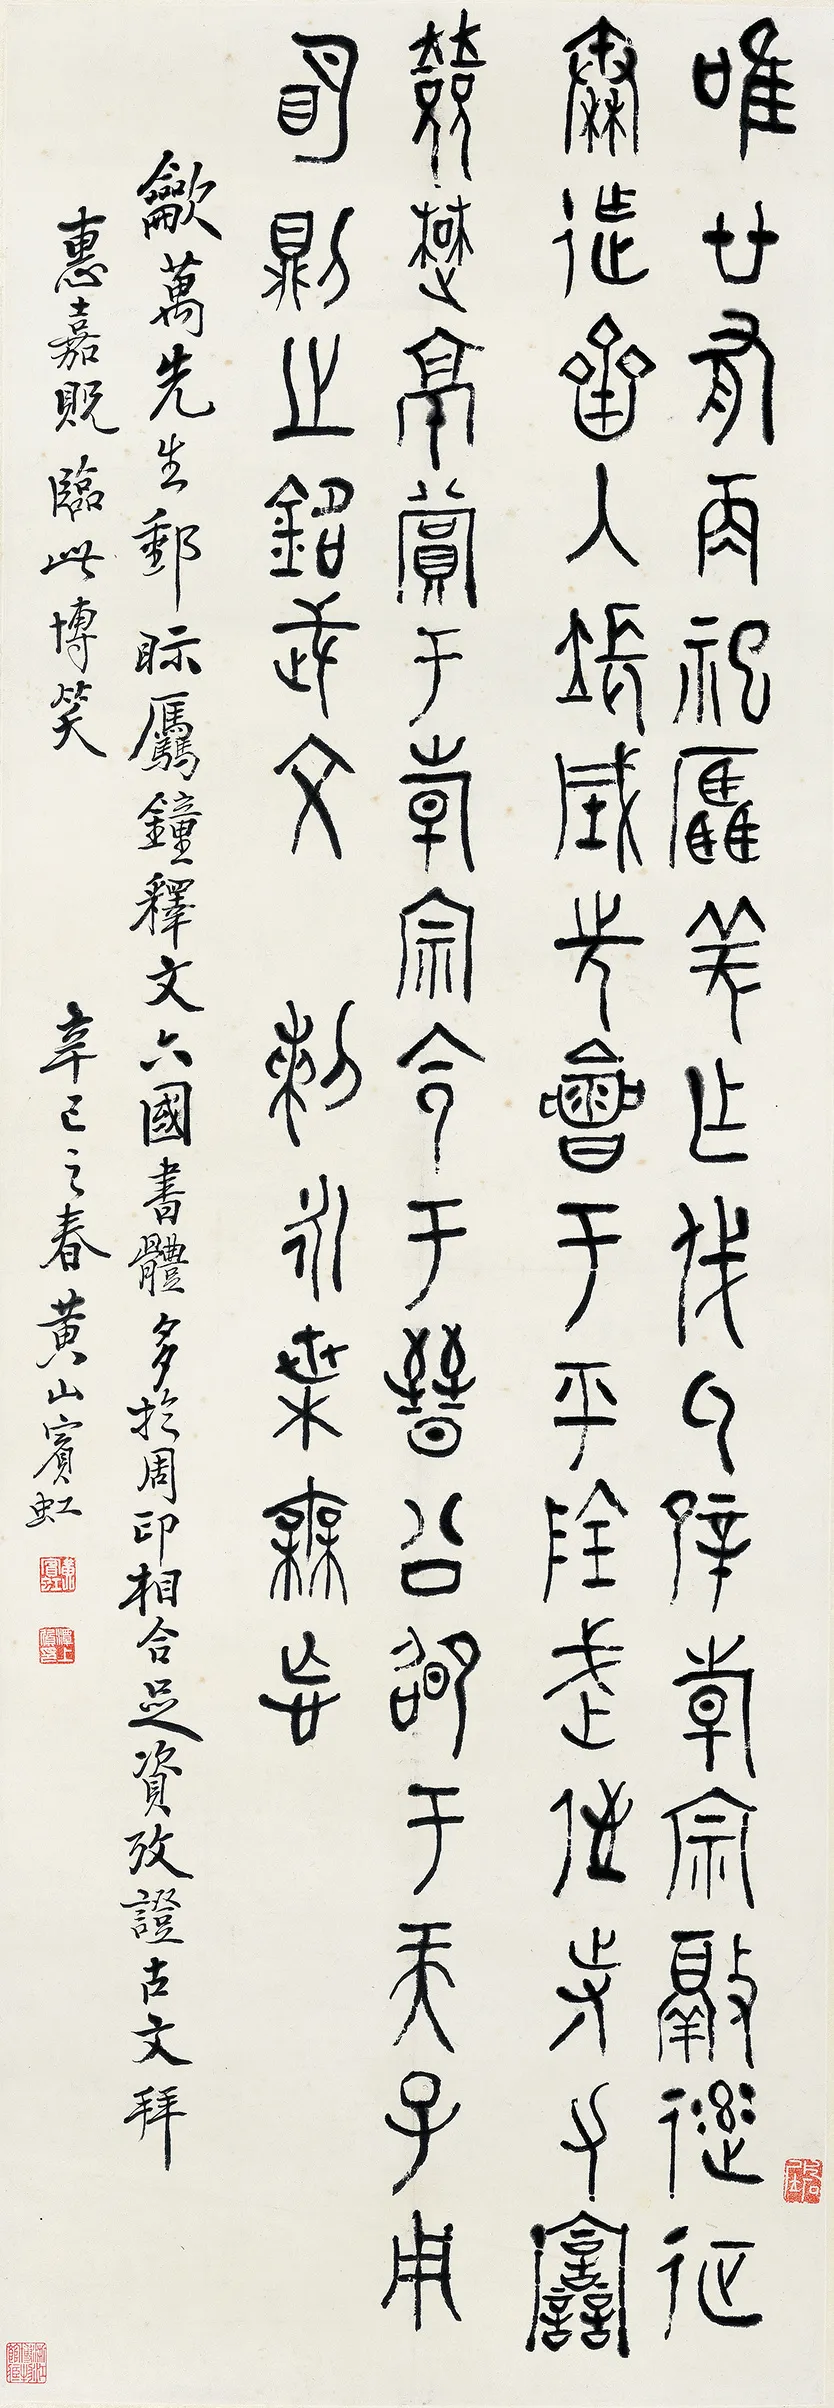 唯廿有再祀驫羌乍伐氒辟倝宗敲征
秦迮齊入長城先會于平陰武侄寺力譶
楚京賞于倝宗令于晉公卲于天子用
明則之銘武文 剌永枼毋忘
萬先生郵眎驫鐘釋文六國書體多於周印相合足資攷證古文拜
惠嘉貺臨此博笑 辛巳之春黃山賓虹